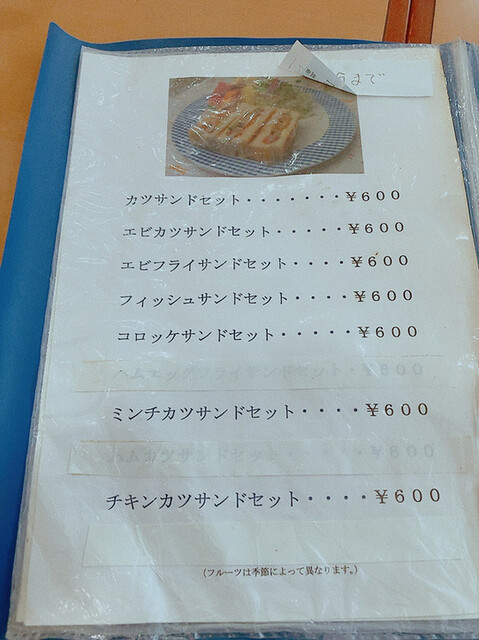 まで
カツサンドセット・・・・・・・¥600
エビカツサンドセット・・・・・¥600
エビフライサンドセット・・・・¥600
フィッシュサンドセット・・・・¥600
コロッケサンドセット・・・・・¥600
ハムエッグフライサンドセット・¥600
ミンチカツサンドセット・・・・¥600
ハムカツサンドセット・・・・・¥600
チキンカツサンドセット・・・・¥600
(フルーツは季節によって異なります。)